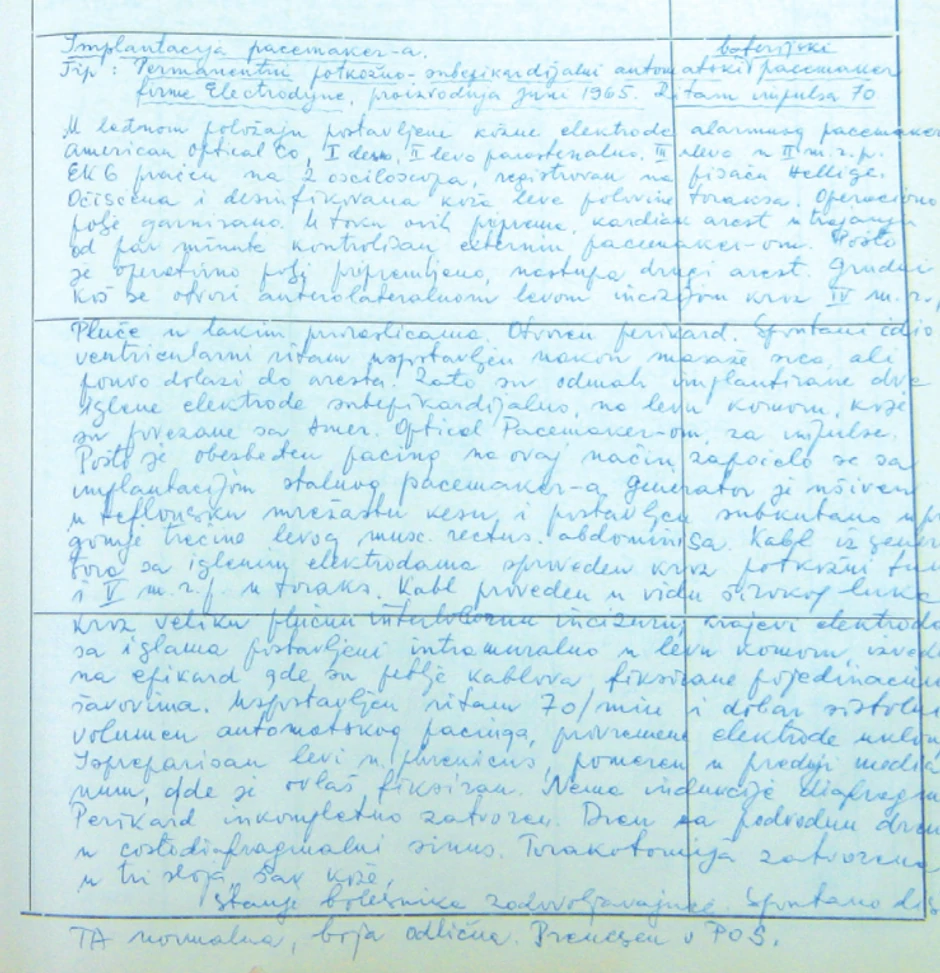 Implantacija pacemaker-a. baterijski
Tip: Permanentni potkožno-subepikardijalni automatski pacemaker
firme Electrodyne, proizvodnja Juni 1965. Ritam impulsa 70
U leđnom položaju postavljene kožne elektrode alarmnog pacemaker
American Optical Co, I desno, II levo parasternalno, III slevo u II m.r.p.
EKG praćen na 2 osciloscopa, registrovan na pisaču Hellige.
Očišćena i desinfikovana koža leve polovine toraksa. Operaciono
polje garnirano. U toku ovih priprema, kardiak arest u trajanju
od par minuta kontrolisan externim pacemaker-om. Pošto
je operativno polje pripremljeno, nastupa drugi arest. Grudni
koš se otvori anterolateralnom levom incizijom kroz IV m.r.
Pluće u lakim priraslicama. Otvoren perikard. Spontani idio
ventricularni ritam uspostavljen nakon masaže srca, ali
ponovo dolazi do aresta. Zato su odmah implantirane dve
iglene elektrode subepikardijalno, na levu komoru, koje
su povezane sa Amer. Optical Pacemaker-om, za impulse.
Pošto je obezbeđen pacing na ovaj način započelo se sa
implantacijom stalnog pacemaker-a. Generator je ušiven
u teflonsku mrežastu kesu i postavljen subkutano
gornje trećine levog musc. rectus. abdominisa. Kabl iz gener
tora sa iglenim elektrodama sproveden kroz potkožni tun
i V m.r.p. u toraks. Kabl proveden u vidu širokog luka
kroz veliku plućnu interlobarnu incizuru, krajevi elektroda
sa iglama postavljeni intramuralno u levu komoru,
na epikard gde su petlje kablova fiksirane pojedinačnim
šavovima. Uspostavljen ritam 70/min i dobar sistolni
volumen automatskog pacinga, privremene elektrode uklon
Isprepariran levi n. phrenicus, pomeren u prednji media
num, gde je ovlaš fiksiran. Nema indukcije diafragm
Perikard inkompletno zatvoren. Dren za podvodnu dren
u costodiafragmalni sinus. Torakotomija zatvorena
u tri sloja, šav kože.
Stanje bolesnika zadovoljavajuće. Spontano dis
TA normalna, boja odlična. Prenesen u POS.